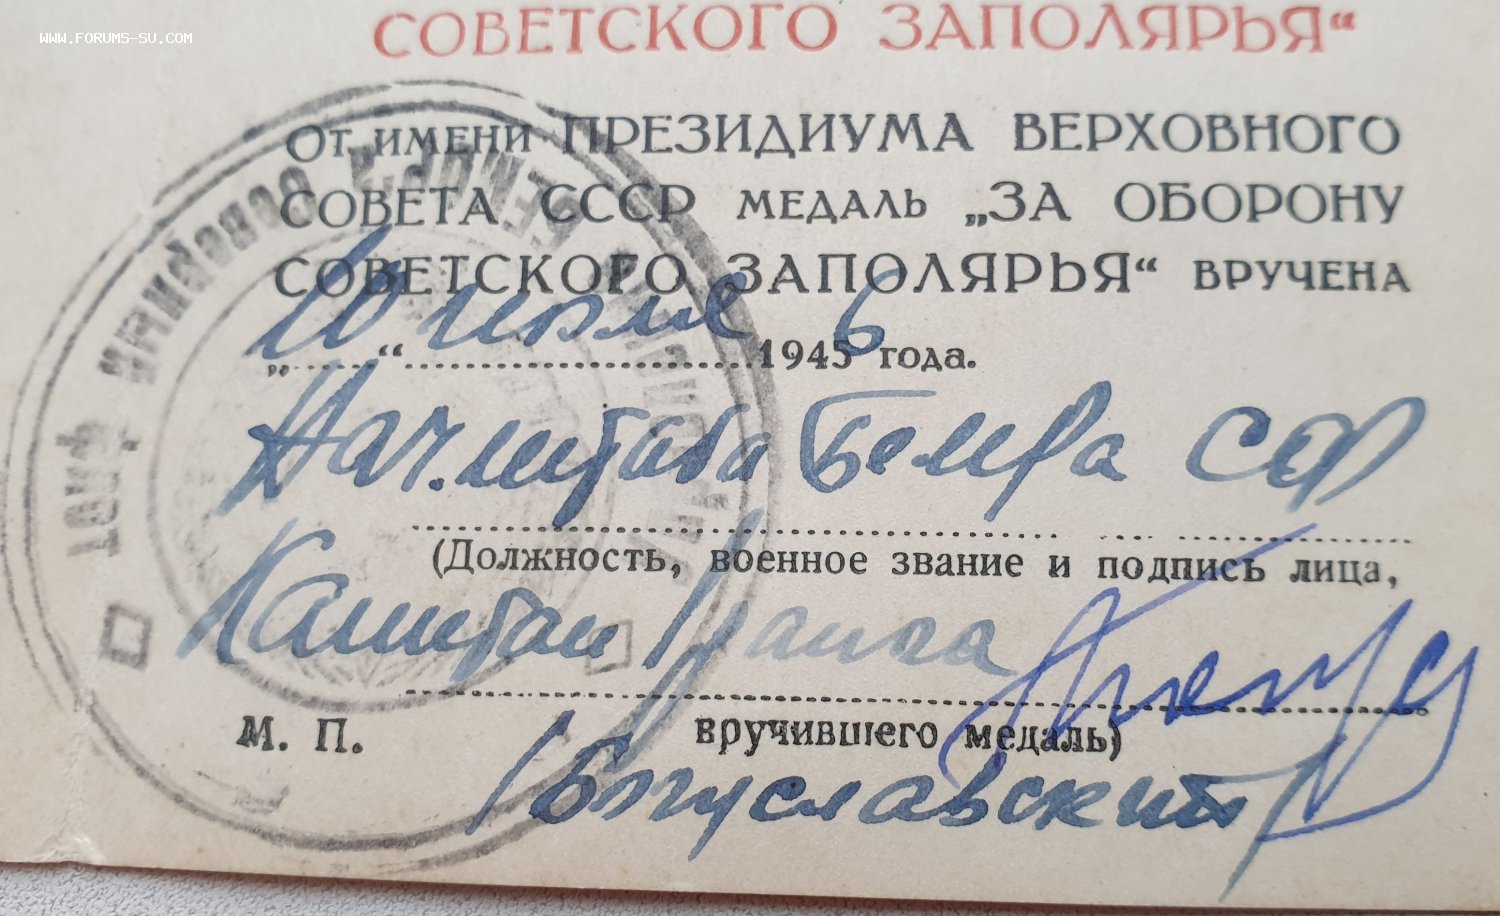 WWW.FORUMS-SU.COM
СОВЕТСКОГО ЗАПОЛЯРЬЯ“
От имени ПРЕЗИДИУМА ВЕРХОВНОГО
СОВЕТА СССР МЕДАЛЬ „ЗА ОБОРОНУ
СОВЕТСКОГО ЗАПОЛЯРЬЯ“ ВРУЧЕНА
„10“ июля 1946 года.
Нач.штаба БЕМРа СФ
(Должность, военное звание и подпись лица,
Капитан ранга
М. П. вручившего медаль)
/Богуславский/